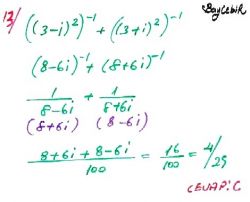 13/ ((3-i)²)⁻¹ + ((3+i)²)⁻¹
BayCebir
(8-6i)⁻¹ + (8+6i)⁻¹
1/(8-6i) + 1/(8+6i)
(8+6i) (8-6i)
(8+6i+8-6i)/100 = 16/100 = 4/25
CEVAP: C